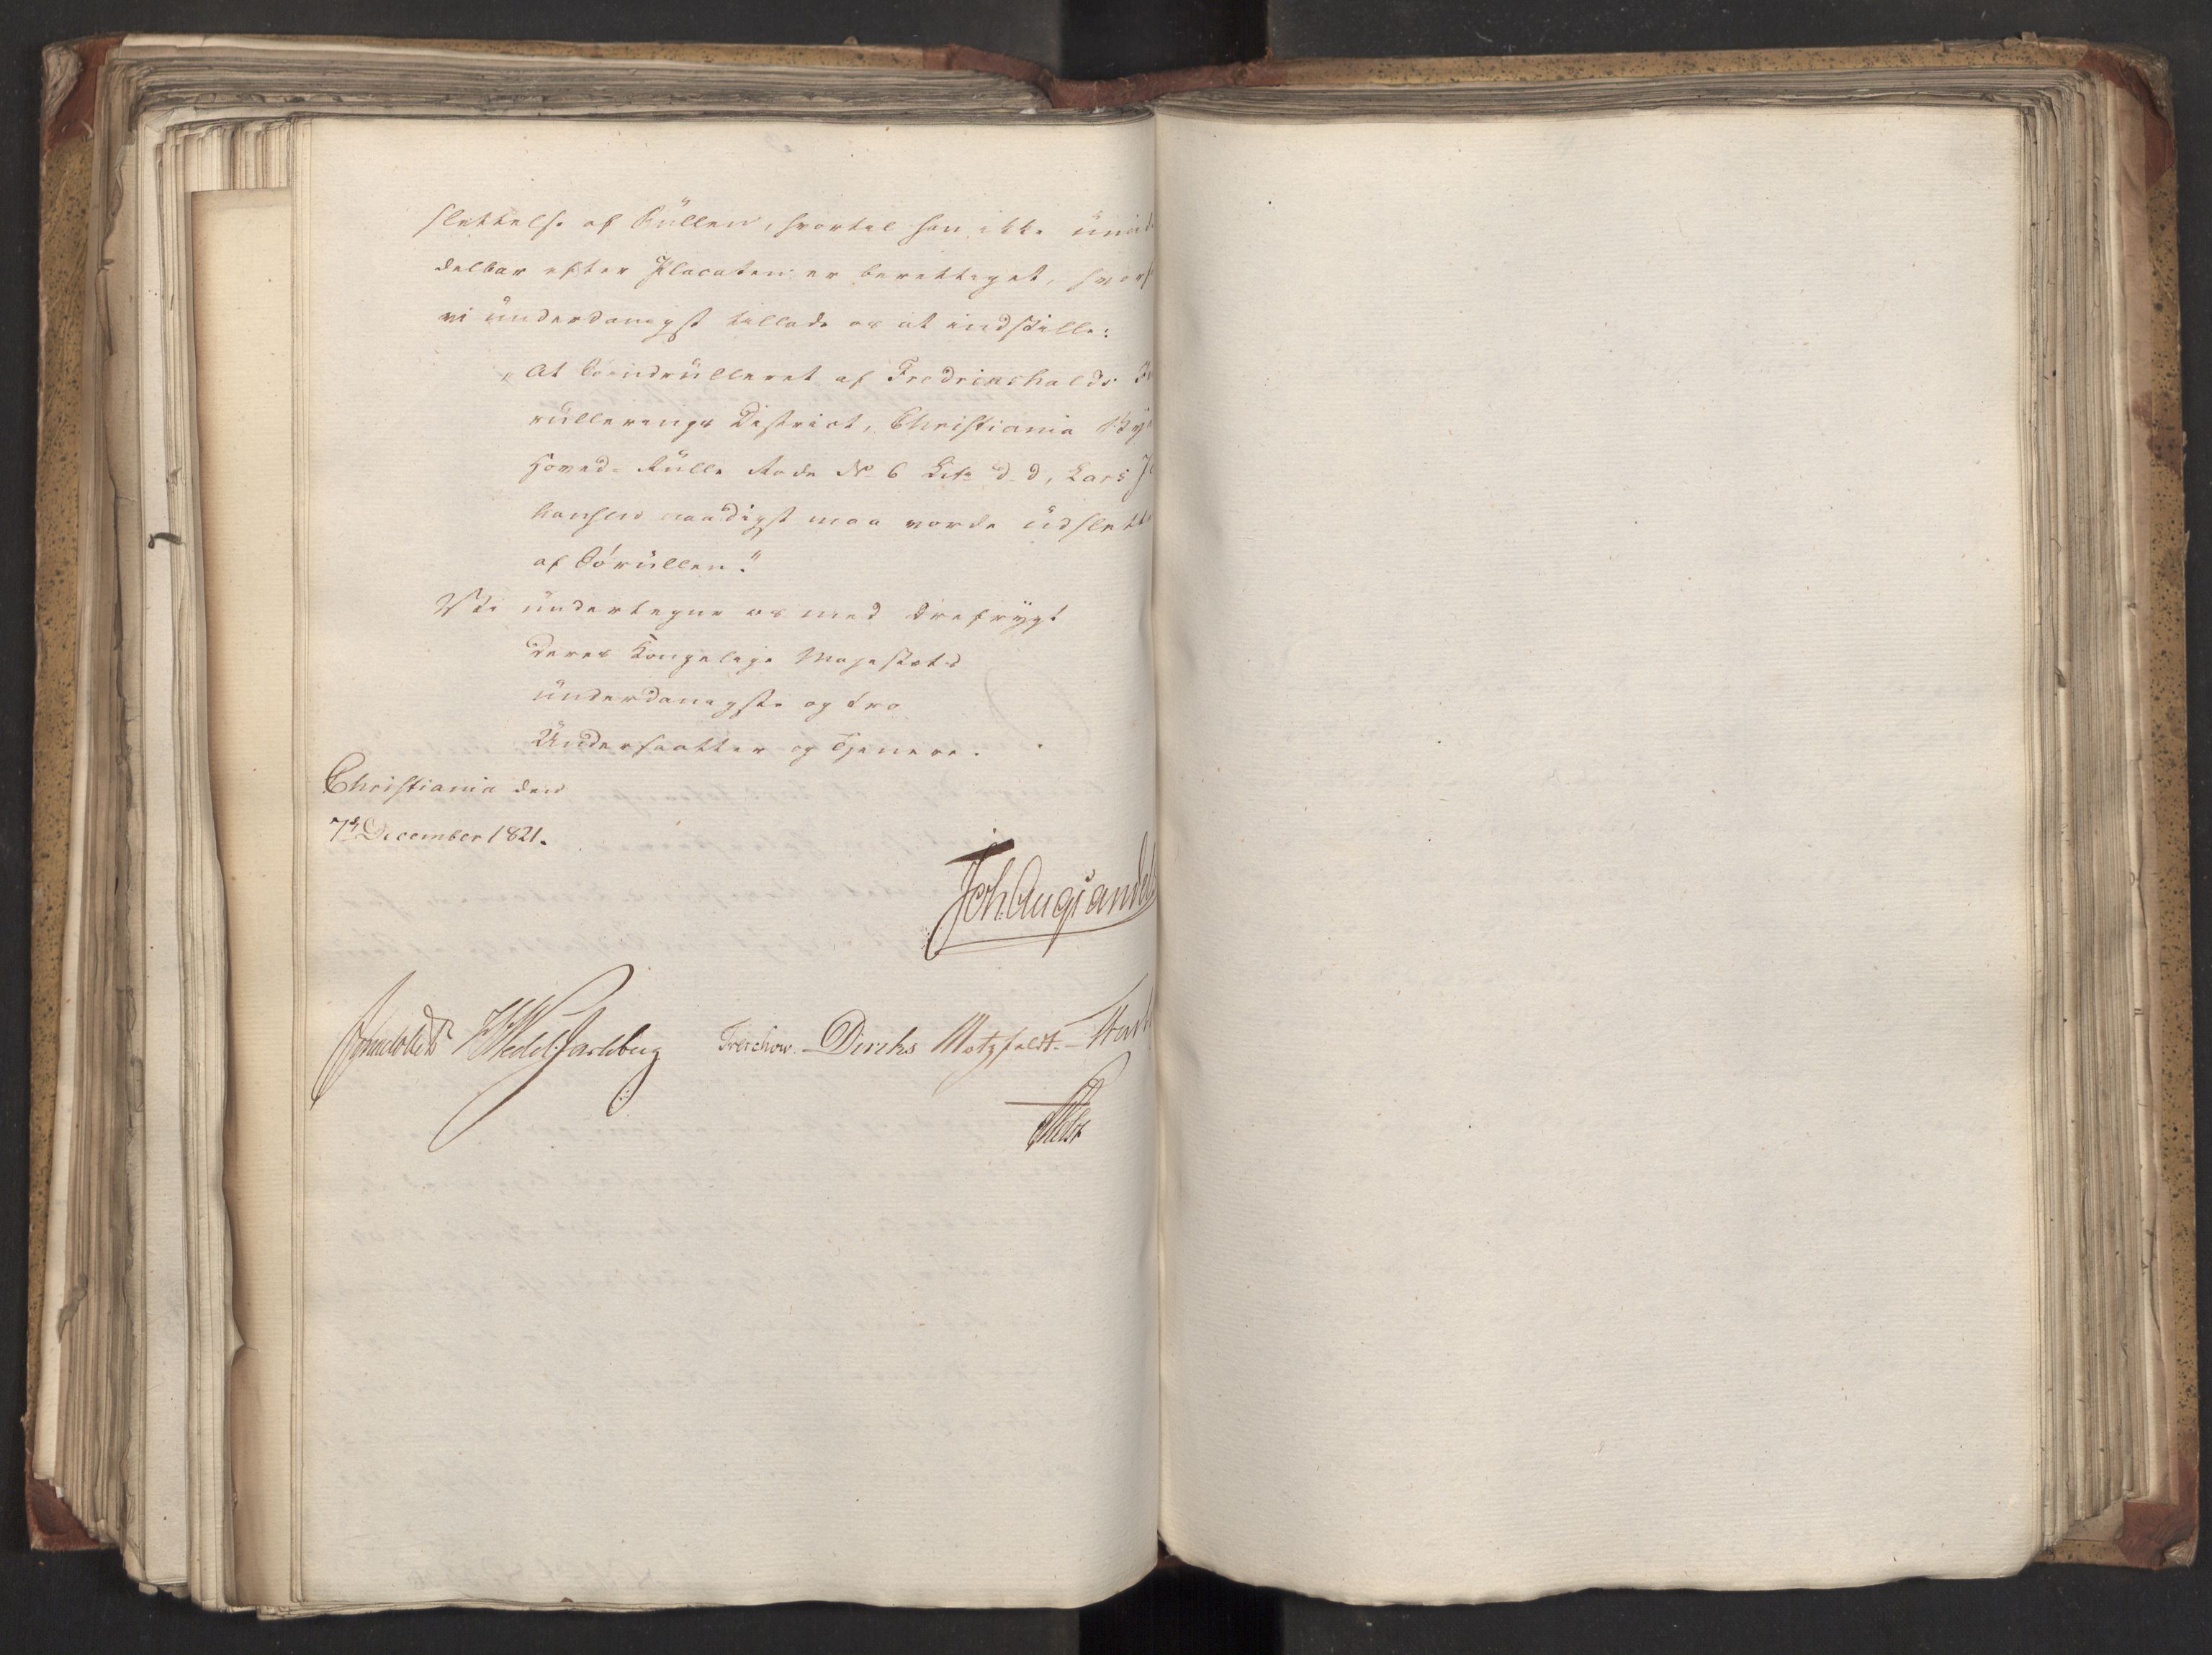 slettelse af Rüllen, hvortil han ikke ümid
delbar efter Placaten er berettiget, hvorf
vi ünderdanigst tillade os at indstille:
"At Søeindrülleret af Fredrikshalds
rüllerings District, Christiania
Hoved-Rülle Rode No 6 Litr. d. d, Lars Jo
hansen naadigst maa vorde üdslett
af Sørüllen."
Vi ündertegne os med Ærefrygt
Deres Kongelige Majestæts
ünderdanigste og tro
Ündersaatter og Tjenere.
Christiania den
7de December 1821.
Joh. Aug. Sandels
Sommerhielm HWedel Jarlsberg Treschow. Diriks Motzfeldt.